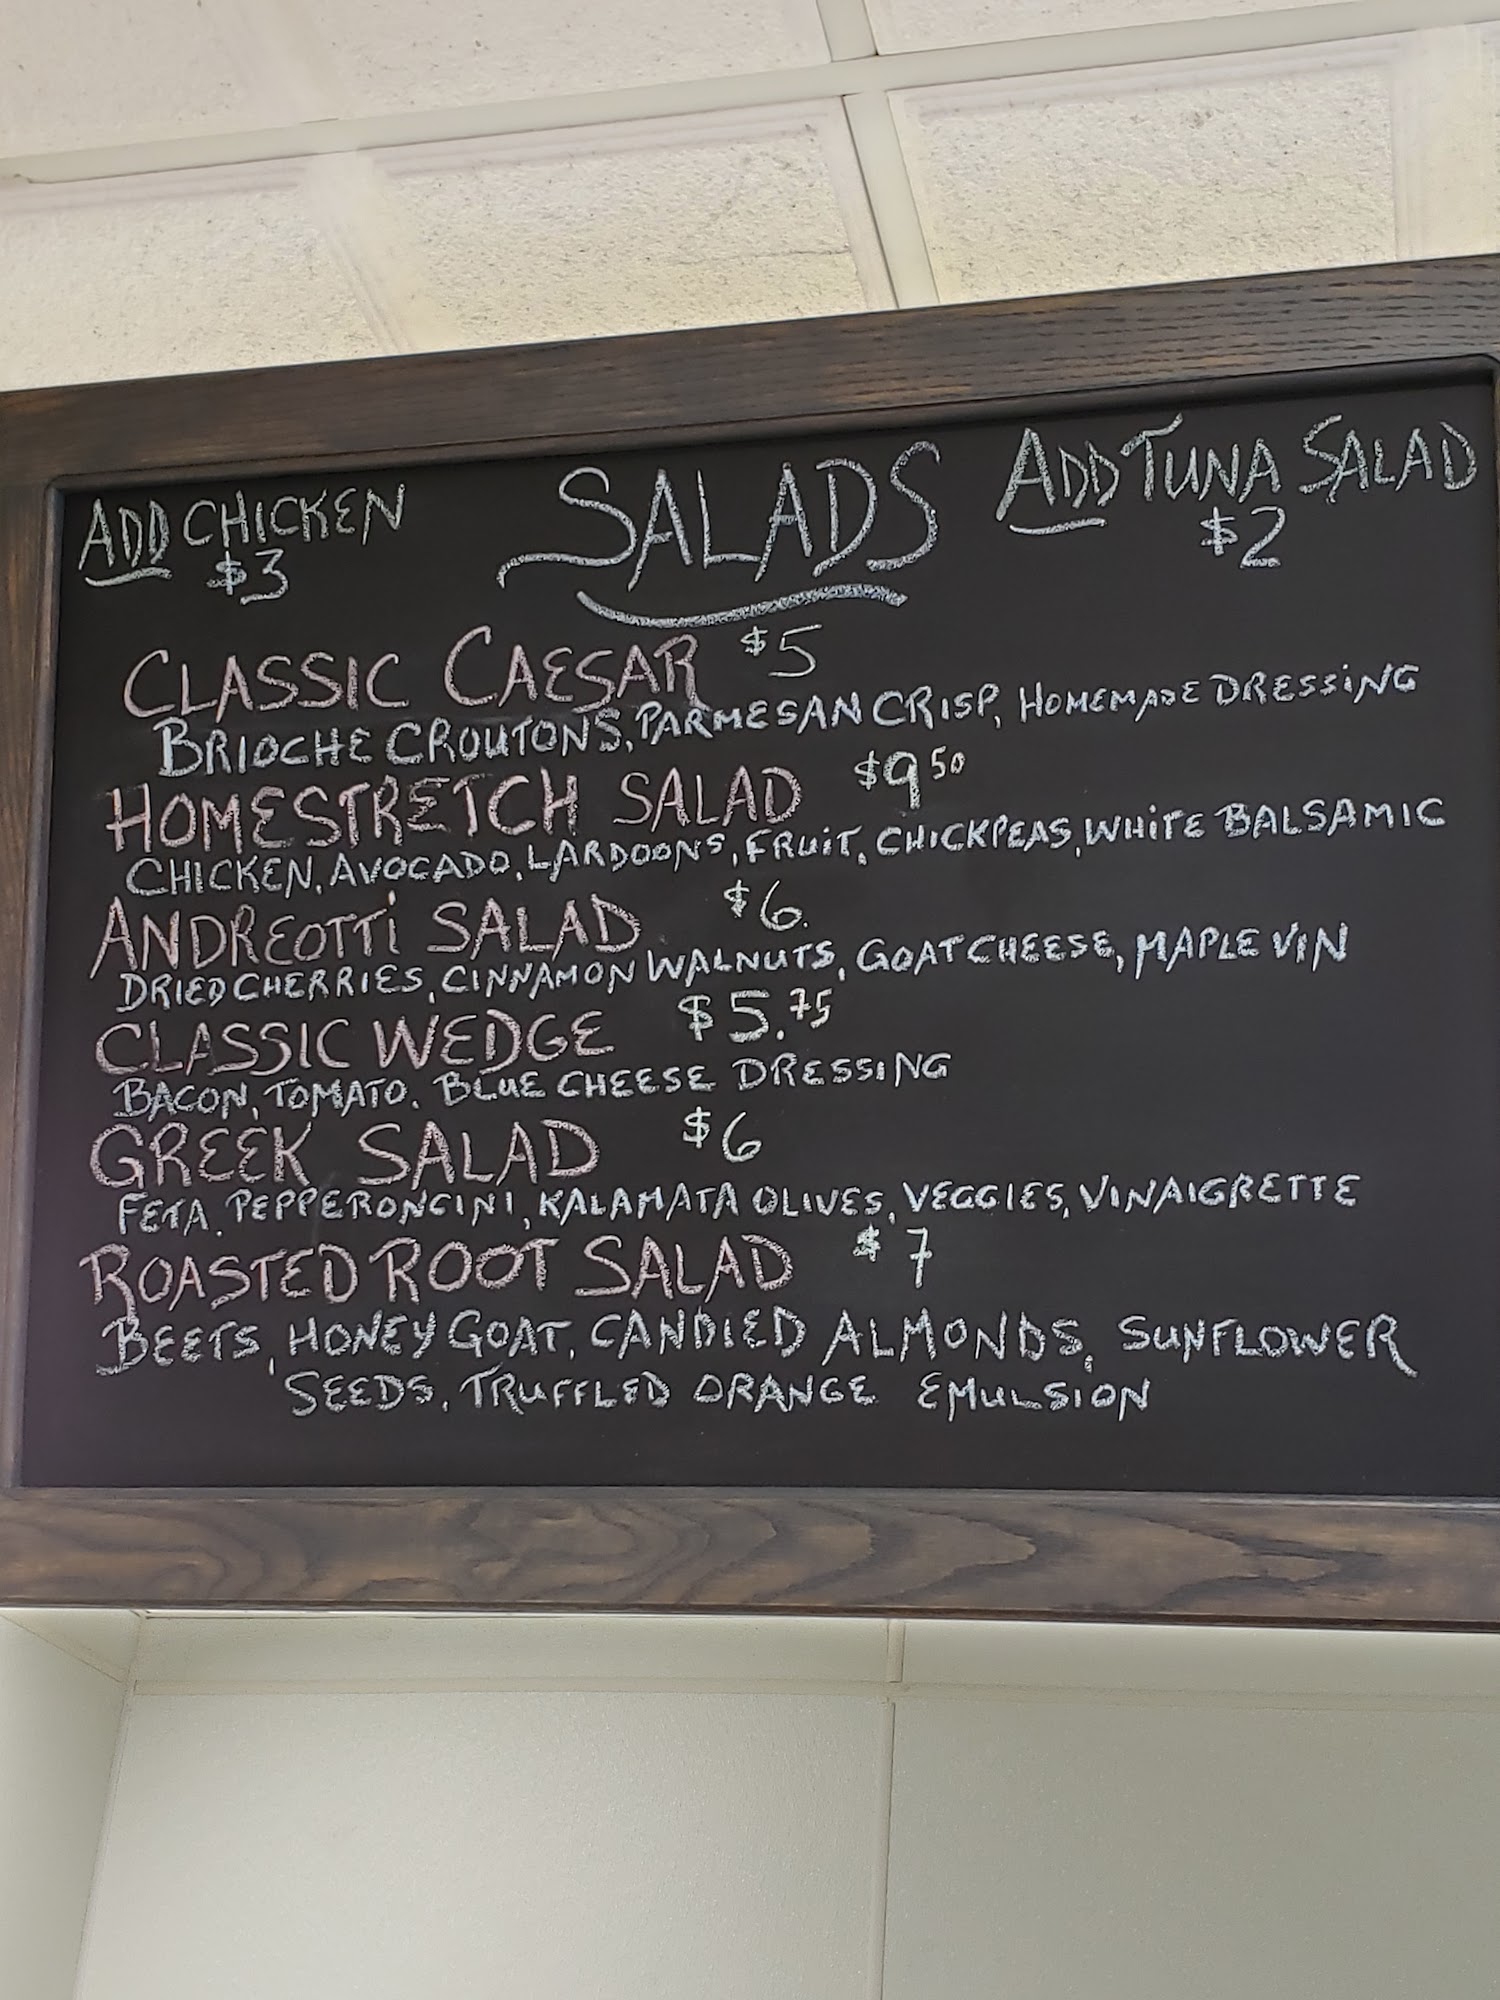 SALADS
ADD CHICKEN
$3
ADD TUNA SALAD
$2
CLASSIC CAESAR $5
BRIOCHE CROUTONS, PARMESAN CRISP, HOMEMADE DRESSING
HOMESTRETCH SALAD $9 50
CHICKEN, AVOCADO, LARDOONS, FRUIT, CHICKPEAS, WHITE BALSAMIC
ANDREOTTI SALAD $6.
DRIED CHERRIES, CINNAMON WALNUTS, GOAT CHEESE, MAPLE VIN
CLASSIC WEDGE $5.75
BACON, TOMATO, BLUE CHEESE DRESSING
GREEK SALAD $6
FETA, PEPPERONCINI, KALAMATA OLIVES, VEGGIES, VINAIGRETTE
ROASTED ROOT SALAD $7
BEETS, HONEY GOAT, CANDIED ALMONDS, SUNFLOWER
SEEDS, TRUFFLED ORANGE EMULSION